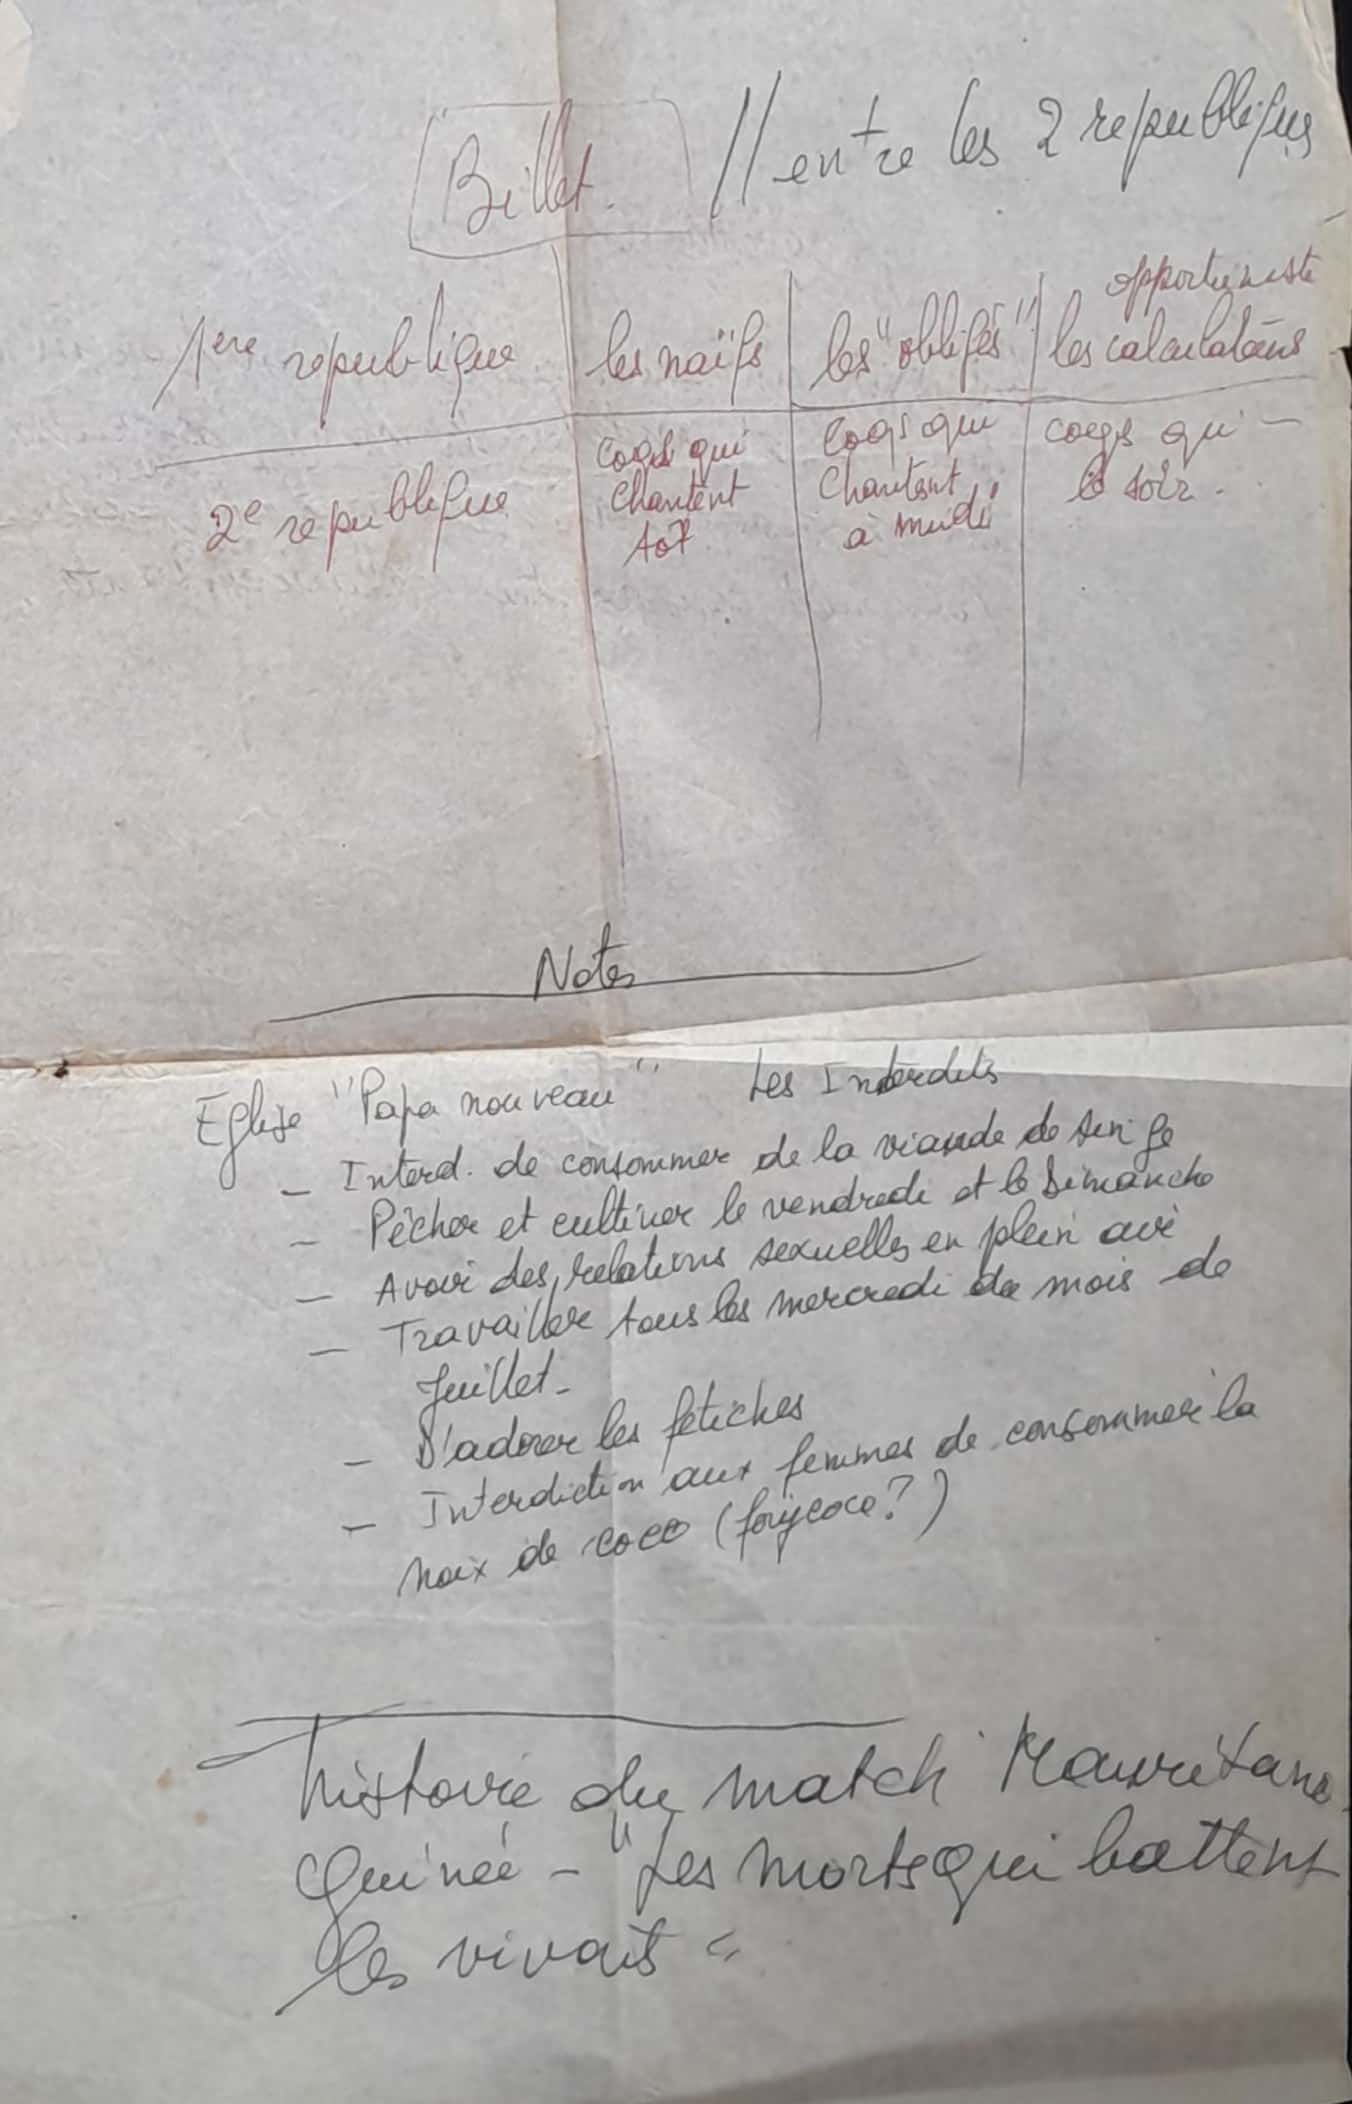 Billet. // entre les 2 republiques
opportuniste
1ère republique les naïfs les "obligés" les calculateurs
2e republique
coqs qui coqs qui coqs qui —
chantent chantent le soir.
tôt à midi
Notes
Eglise "Papa nouveau" Les Interdits
— Interd. de consommer de la viande de singe
— Pêcher et cultiver le vendredi et le Dimanche
— Avoir des relations sexuelles en plein air
— Travailler tous les mercredi du mois de
Juillet -
— D'adorer les fétiches
— Interdiction aux femmes de consommer la
noix de coco ( ?)
histoire du match Mauritanie
Guinée - "Les morts qui battent
les vivants"